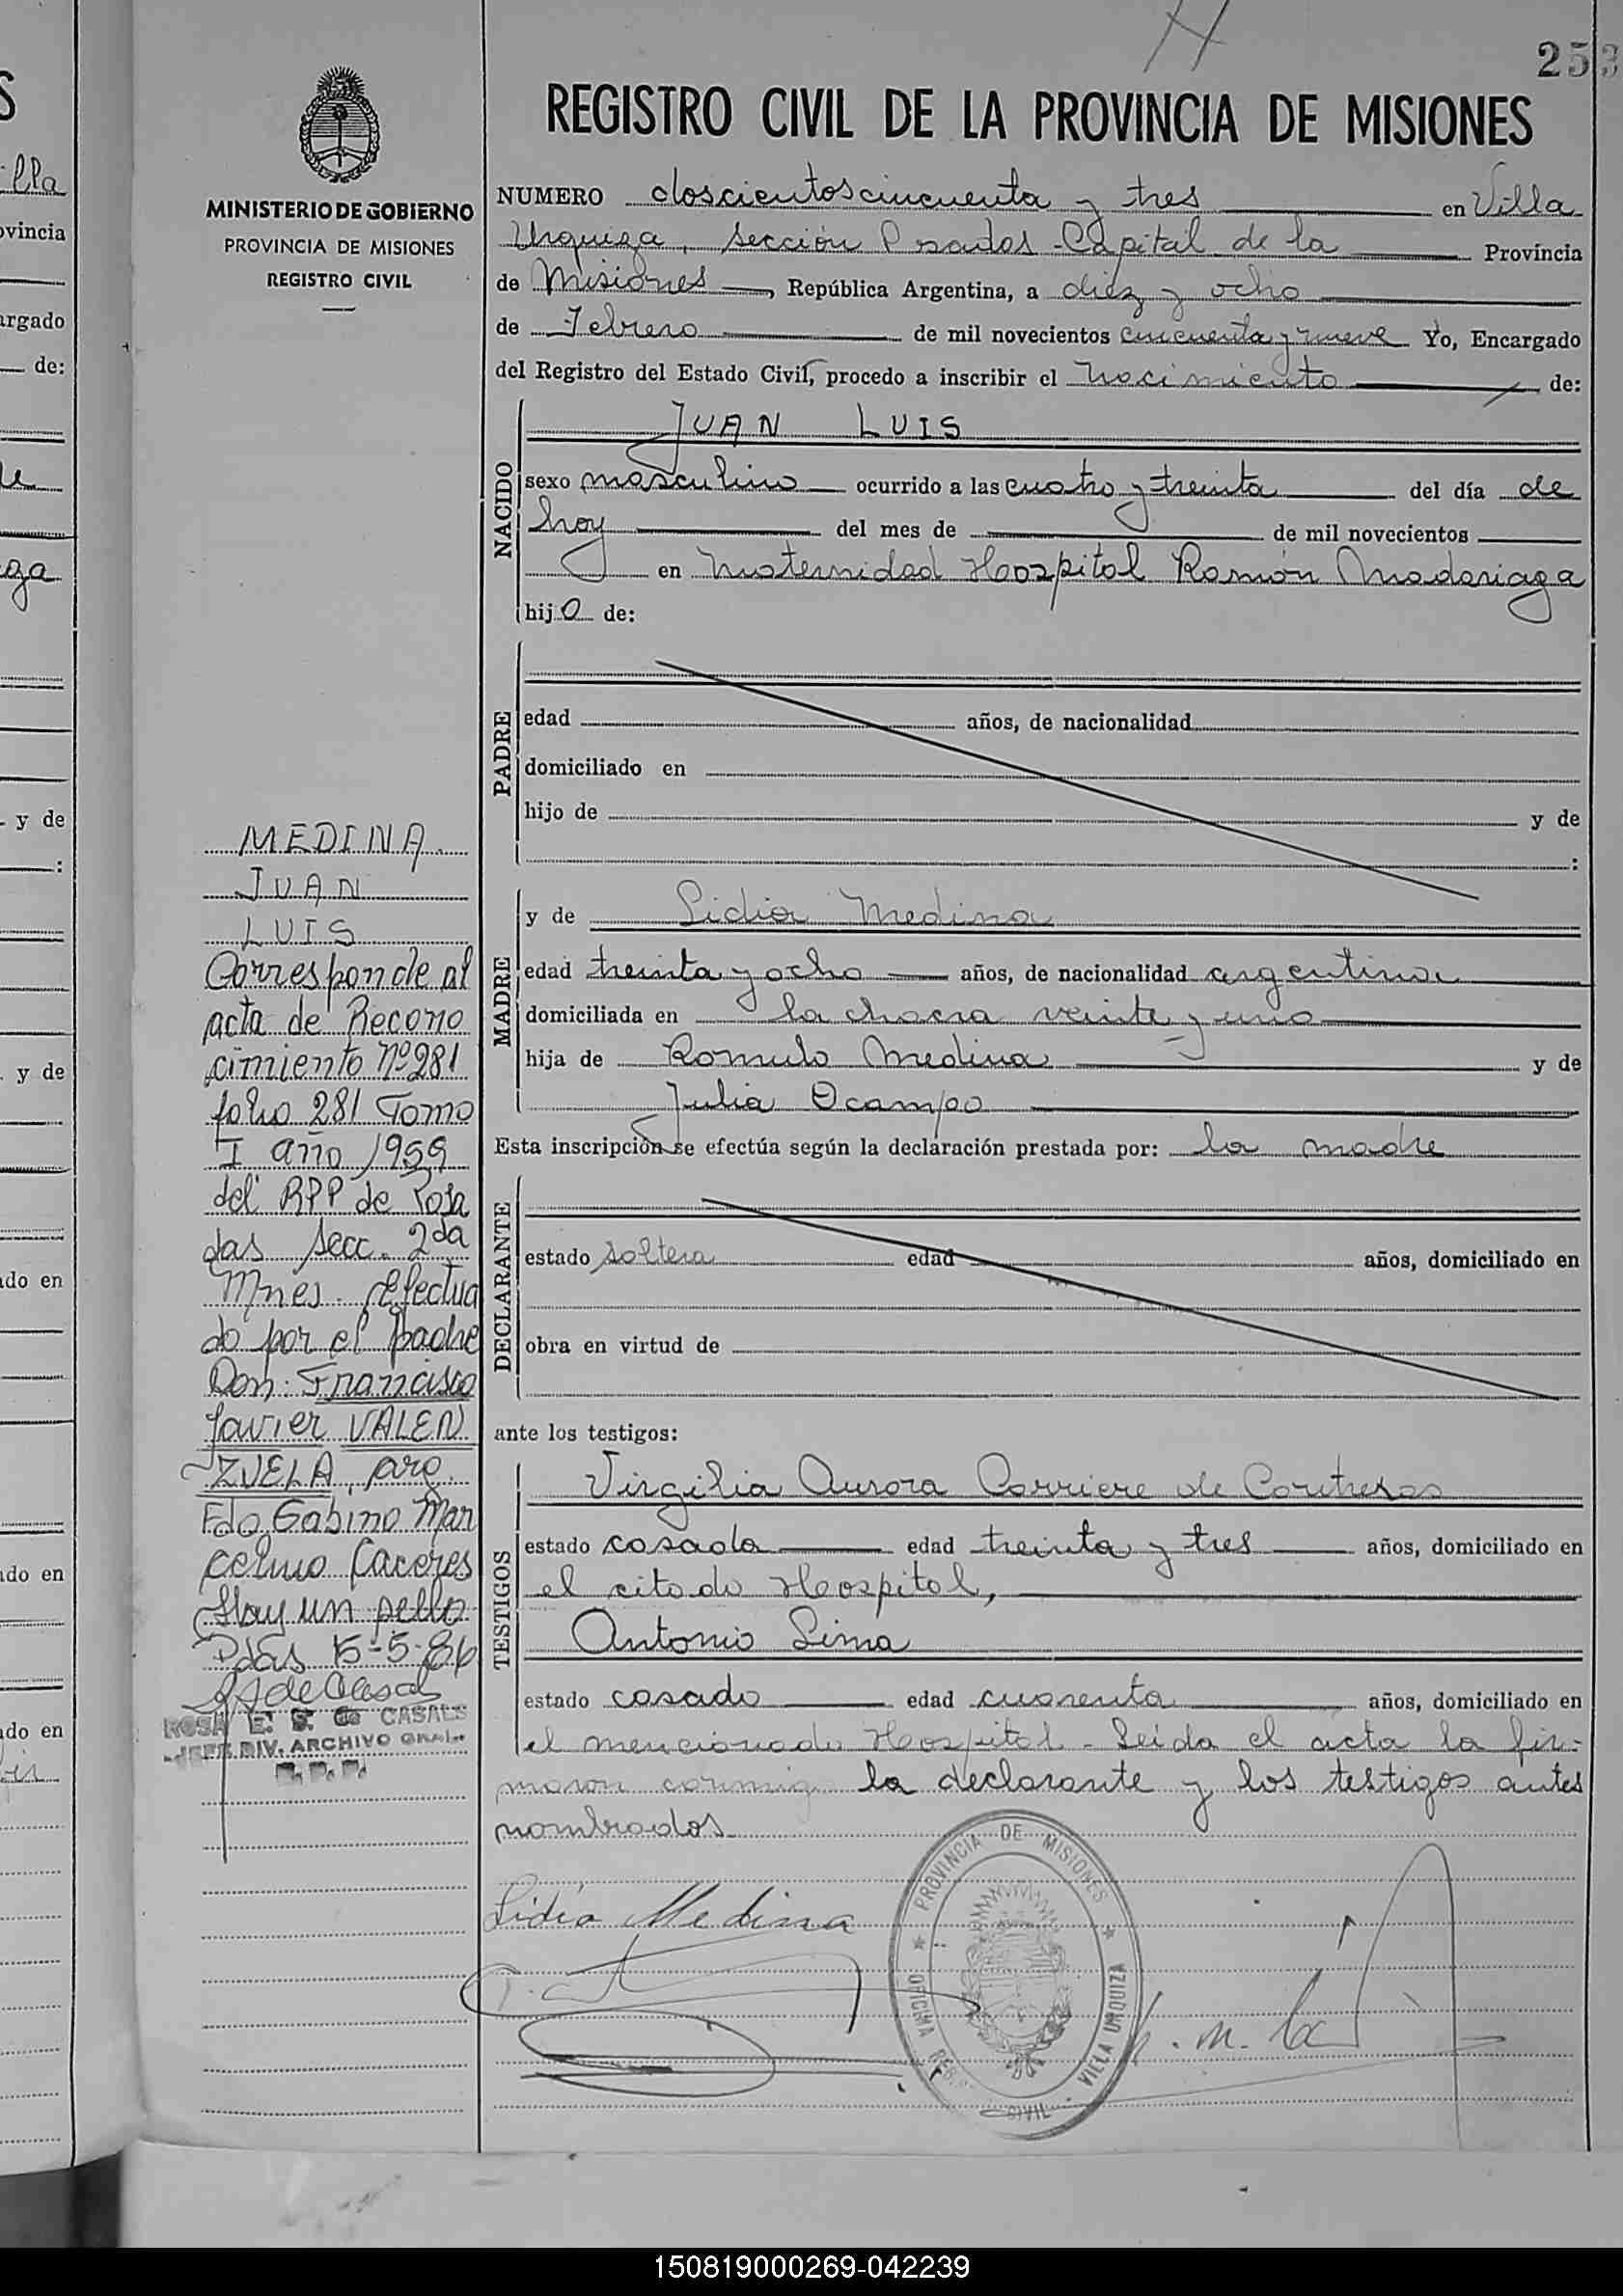 253
REGISTRO CIVIL DE LA PROVINCIA DE MISIONES
MINISTERIO DE GOBIERNO
PROVINCIA DE MISIONES
REGISTRO CIVIL
NUMERO doscientos cincuenta y tres en Villa
Urquiza, sección Posadas - Capital de la Provincia
de Misiones, República Argentina, a diez y ocho
de Febrero de mil novecientos cincuenta y nueve Yo, Encargado
del Registro del Estado Civil, procedo a inscribir el nacimiento de:
NACIDO
JUAN LUIS
sexo masculino ocurrido a las cuatro y treinta del día de
hoy del mes de de mil novecientos
en Maternidad Hospital Ramón Madariaga
hijo de:
PADRE
edad años, de nacionalidad
domiciliado en
hijo de y de
:
MADRE
y de Lidia Medina
edad treinta y ocho años, de nacionalidad argentina
domiciliada en la chacra veinte y uno
hija de Romulo Medina y de
Julia Ocampo
Esta inscripción se efectúa según la declaración prestada por: la madre
DECLARANTE
estado soltera edad años, domiciliado en
obra en virtud de
ante los testigos:
TESTIGOS
Virgilia Aurora Carriere de Contreras
estado casada edad treinta y tres años, domiciliado en
el citado Hospital,
Antonio Lima
estado casado edad cuarenta años, domiciliado en
el mencionado Hospital - Leída el acta la fir-
maron conmigo la declarante y los testigos antes
nombrados
Lidia Medina
PROVINCIA DE MISIONES
OFICINA REG. CIVIL - VILLA URQUIZA
MEDINA
JUAN
LUIS
Corresponde al
acta de Recono
cimiento Nº 281
folio 281 Tomo
I año 1959
del RPP de Posa
das Secc. 2da
Mnes. efectua
do por el padre
Don: Francisco
Javier VALEN
ZUELA, arg.
Fdo Gabino Mar
celino Caceres
Hay un sello
Pdas 15-5-86
ROSA E. S. de CASALS
JEFE DIV. ARCHIVO GRAL.
R. P. P.
lla
ovincia
argado
de:
y de
:
y de
ado en
ado en
ado en
150819000269-042239